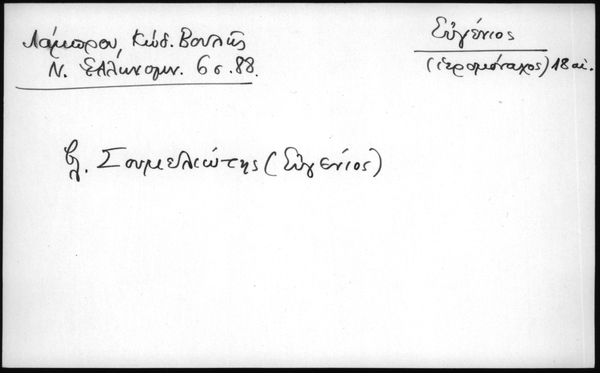 Λάμπρου, Κώδ. Βουλῆς
Ν. Ἑλληνομν. 6 σ. 88.
Εὐγένιος
(ἱερομόναχος) 18 αἰ.
βλ. Σουμελιώτης (Εὐγένιος)